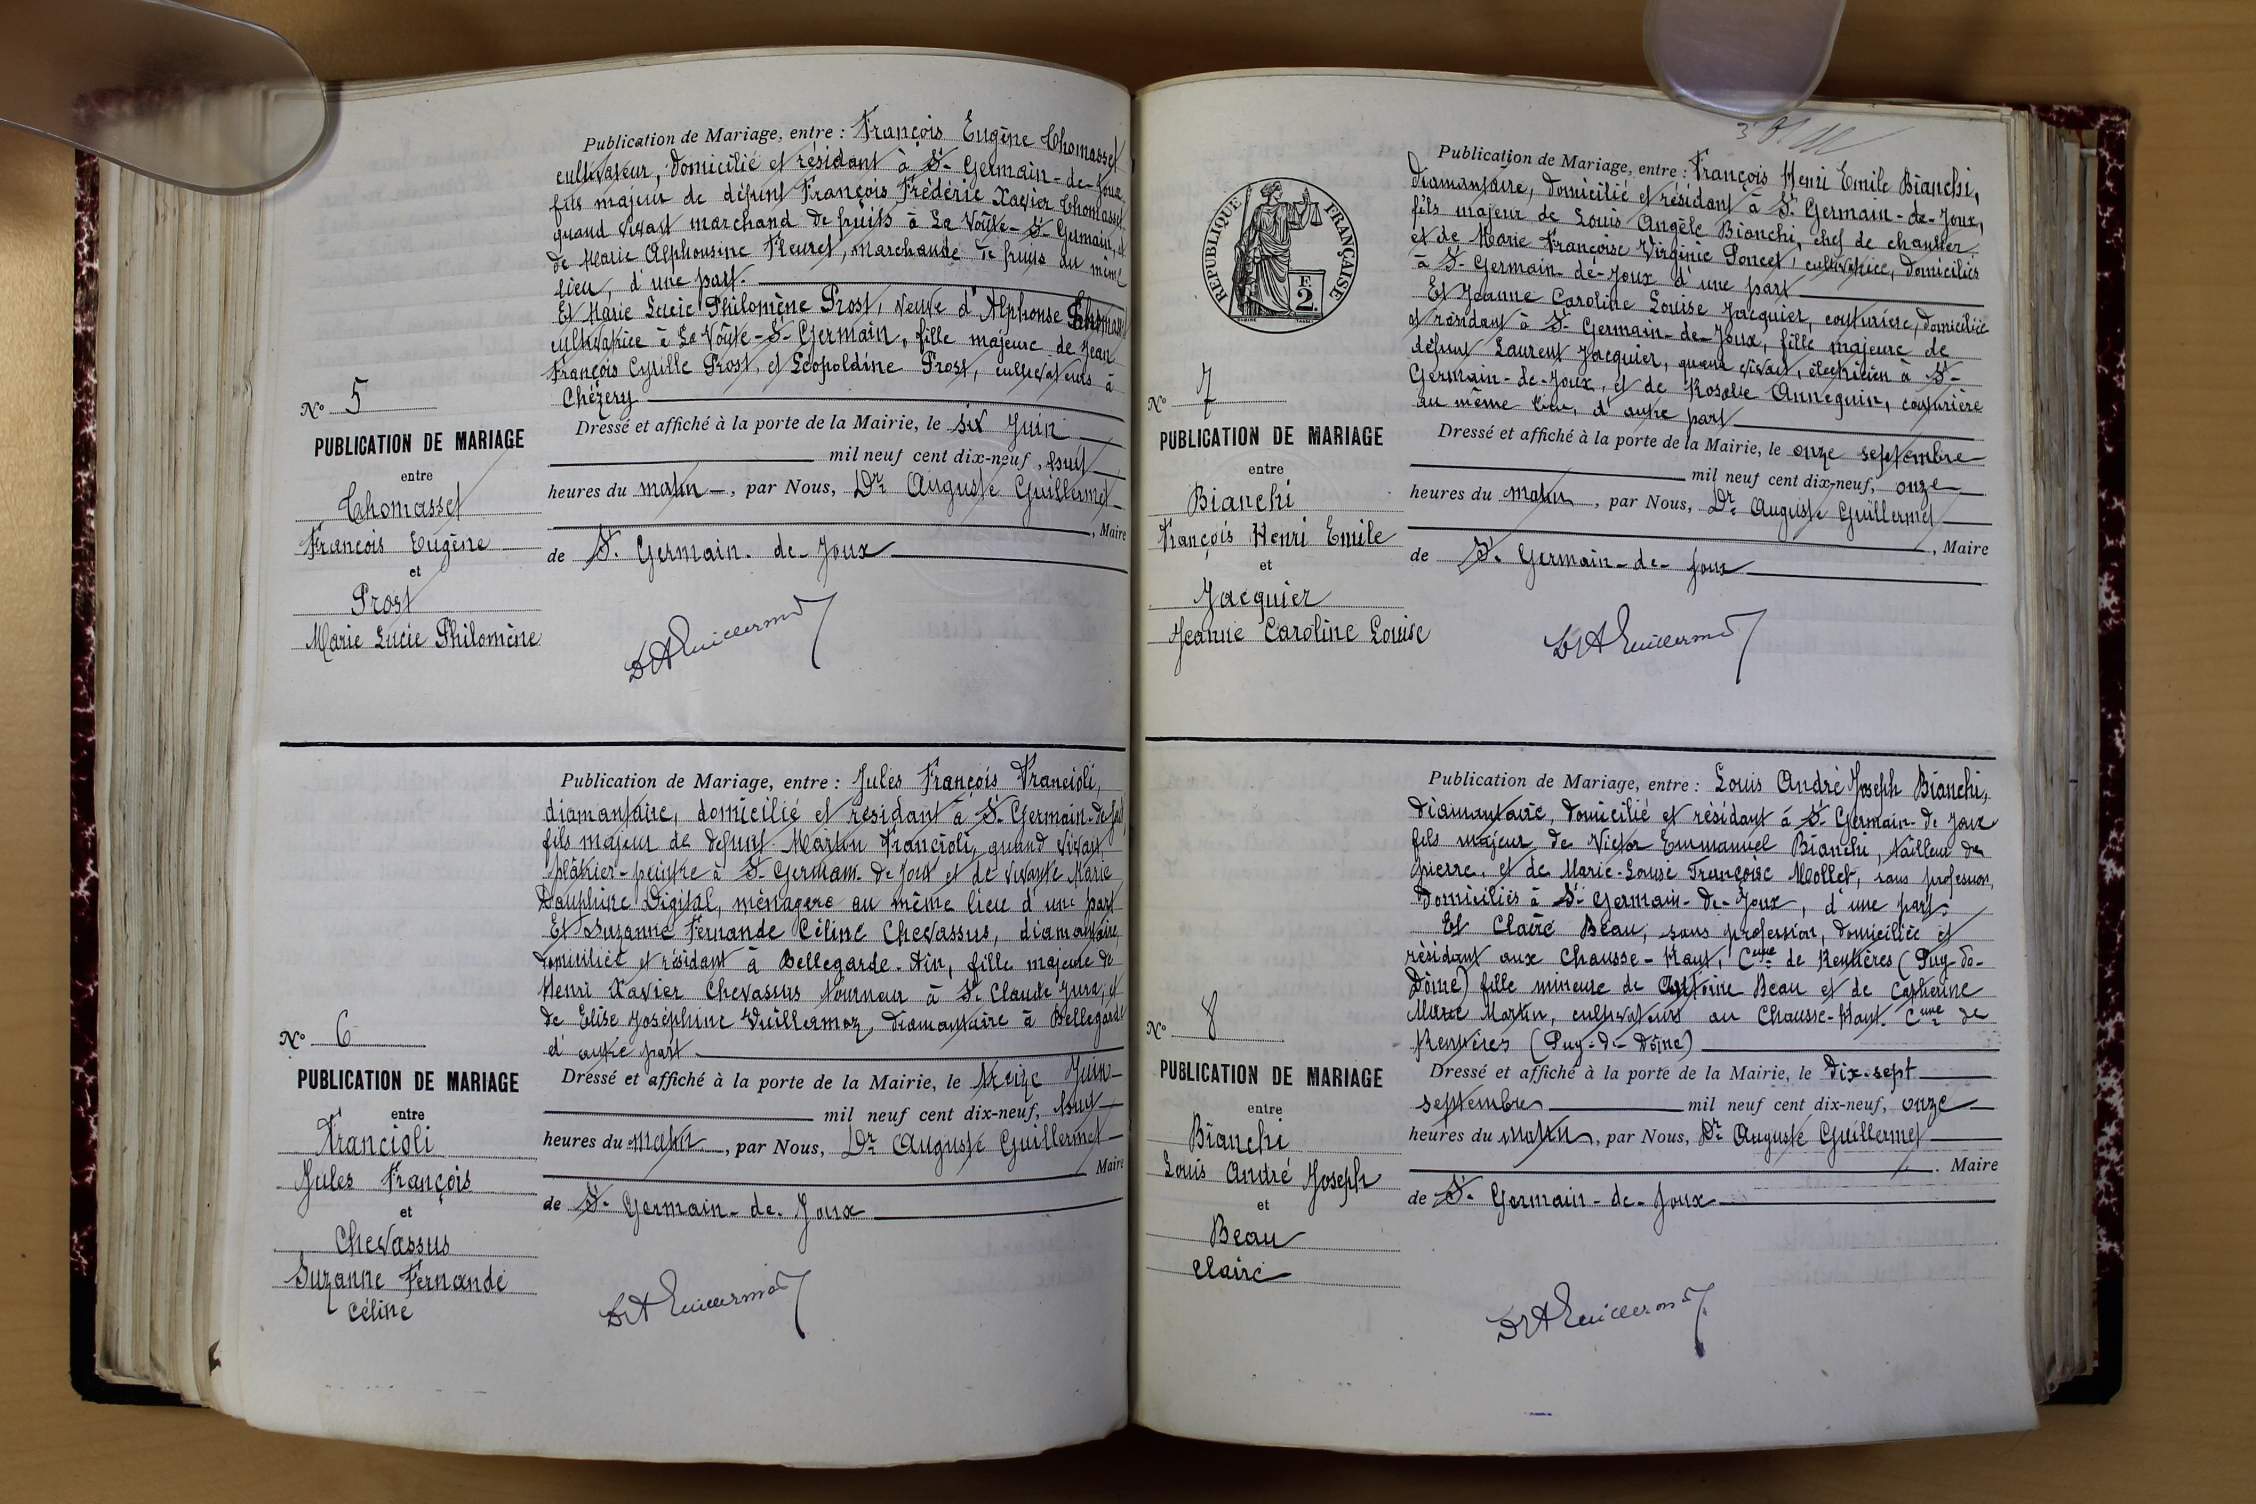 N° 5
PUBLICATION DE MARIAGE
entre
Thomasset
François Eugène
et
Prost
Marie Lucie Philomène
Publication de Mariage, entre : François Eugène Thomasset
cultivateur, domicilié et résidant à St Germain-de-Joux
fils majeur de défunt François Frédéric Xavier Thomasset
quand vivait marchand de fruits à La Voûte-St Germain, et
de Marie Alphonsine Fleuret, marchande de fruits au même
lieu, d'une part.
Et Marie Lucie Philomène Prost, veuve d'Alphonse Thomasset
cultivatrice à La Voûte-St Germain, fille majeure de Jean
François Cyrille Prost, et Léopoldine Prost, cultivateurs à
Chézery
Dressé et affiché à la porte de la Mairie, le six Juin
mil neuf cent dix-neuf, huit
heures du matin, par Nous, Dr Auguste Guillermet
, Maire
de St Germain-de-Joux
Dr A Guillermet
N° 6
PUBLICATION DE MARIAGE
entre
Francioli
Jules François
et
Chevassus
Suzanne Fernande
Céline
Publication de Mariage, entre : Jules François Francioli,
diamantaire, domicilié et résidant à St Germain-de-Joux,
fils majeur de défunt Martin Francioli, quand vivait
plâtrier-peintre à St Germain de Joux et de vivante Marie
Dauphine Digital, ménagère au même lieu d'une part
Et Suzanne Fernande Céline Chevassus, diamantaire,
domiciliée et résidant à Bellegarde-Ain, fille majeure de
Henri Xavier Chevassus tourneur à St Claude Jura, et
de Elise Joséphine Vuillermoz, diamantaire à Bellegarde
d'autre part
Dressé et affiché à la porte de la Mairie, le treize Juin
mil neuf cent dix-neuf, huit
heures du matin, par Nous, Dr Auguste Guillermet
Maire
de St Germain-de-Joux
Dr A Guillermet
RÉPUBLIQUE FRANÇAISE
F.
2
N° 7
PUBLICATION DE MARIAGE
entre
Bianchi
François Henri Emile
et
Jacquier
Jeanne Caroline Louise
Publication de Mariage, entre : François Henri Emile Bianchi,
diamantaire, domicilié et résidant à St Germain-de-Joux,
fils majeur de Louis Angèle Bianchi, chef de chantier
et de Marie Françoise Virginie Poncet, cultivatrice, domiciliés
à St Germain-de-Joux d'une part
Et Jeanne Caroline Louise Jacquier, couturière, domiciliée
et résidant à St Germain-de-Joux, fille majeure de
défunt Laurent Jacquier, quand vivait, électricien à St
Germain-de-Joux, et de Rosalie Annequin, couturière
au même lieu, d'autre part
Dressé et affiché à la porte de la Mairie, le onze septembre
mil neuf cent dix-neuf, onze
heures du matin, par Nous, Dr Auguste Guillermet
, Maire
de St Germain-de-Joux
Dr A Guillermet
N° 8
PUBLICATION DE MARIAGE
entre
Bianchi
Louis André Joseph
et
Beau
Claire
Publication de Mariage, entre : Louis André Joseph Bianchi,
diamantaire, domicilié et résidant à St Germain-de Joux
fils majeur de Victor Emmanuel Bianchi, tailleur de
pierre, et de Marie-Louise Françoise Mollet, sans profession,
domiciliés à St Germain-de-Joux, d'une part.
Et Claire Beau, sans profession, domiciliée et
résidant aux Chausse-Haut, Cune de Rentières (Puy-do-
Dôme) fille mineure de Antoine Beau et de Catherine
Marie Martin, cultivateurs au Chausse-Haut. Cune de
Rentières (Puy-de-Dôme)
Dressé et affiché à la porte de la Mairie, le dix-sept
septembre mil neuf cent dix-neuf, onze
heures du matin, par Nous, Dr Auguste Guillermet
. Maire
de St Germain-de-Joux
Dr A Guillermet